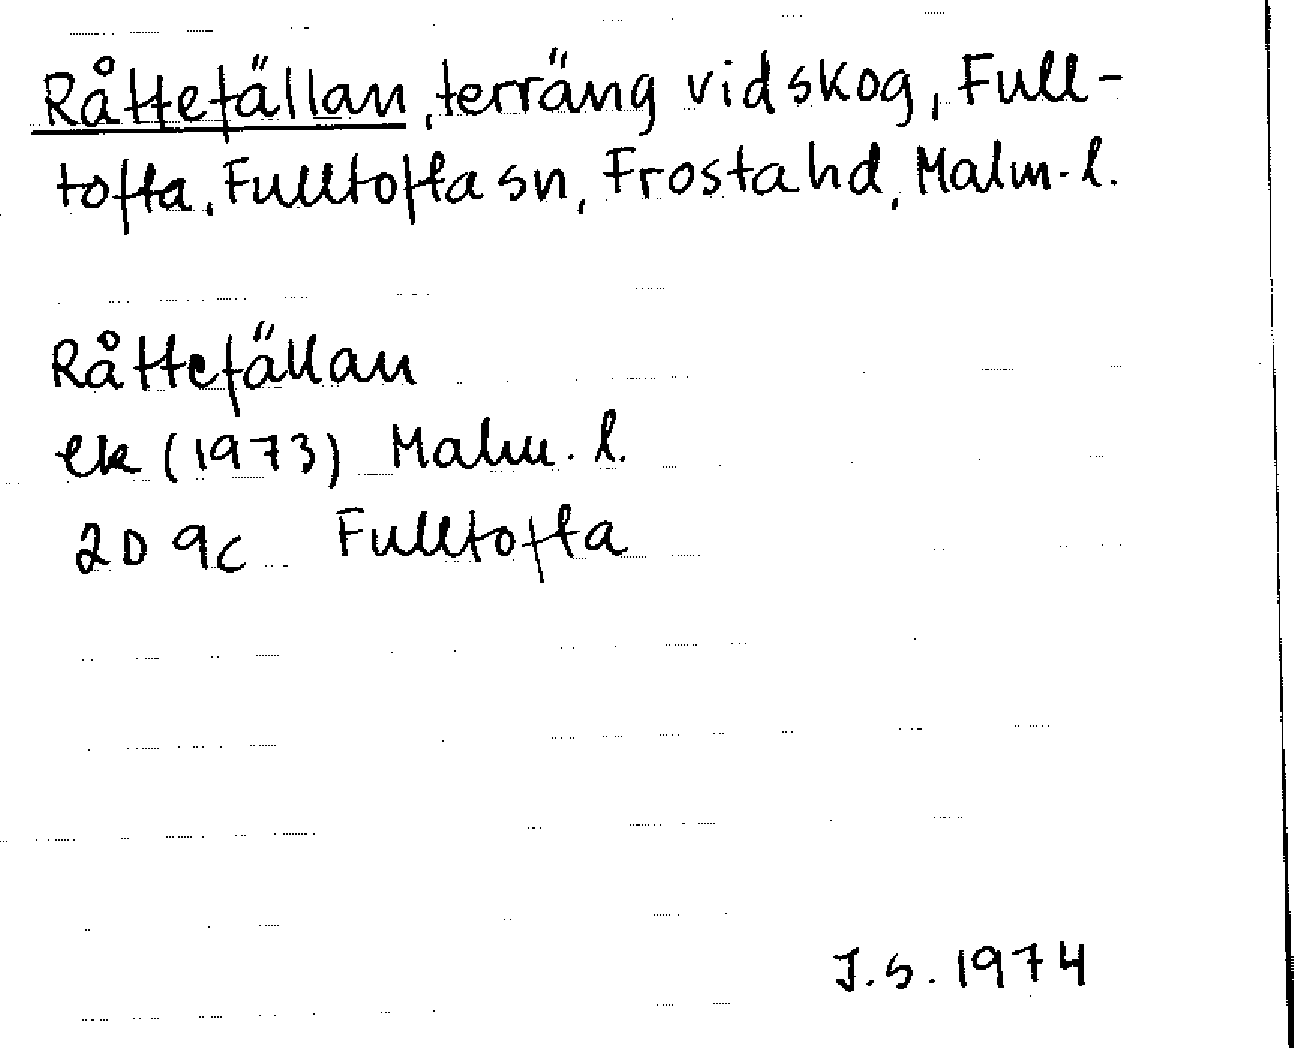 Råttefällan, terräng vid skog, Full-
tofta, Fulltofta sn, Frosta hd, Malm. l.
Råttefällan
ek (1973) Malm. l.
2D 9c Fulltofta
J.S. 1974